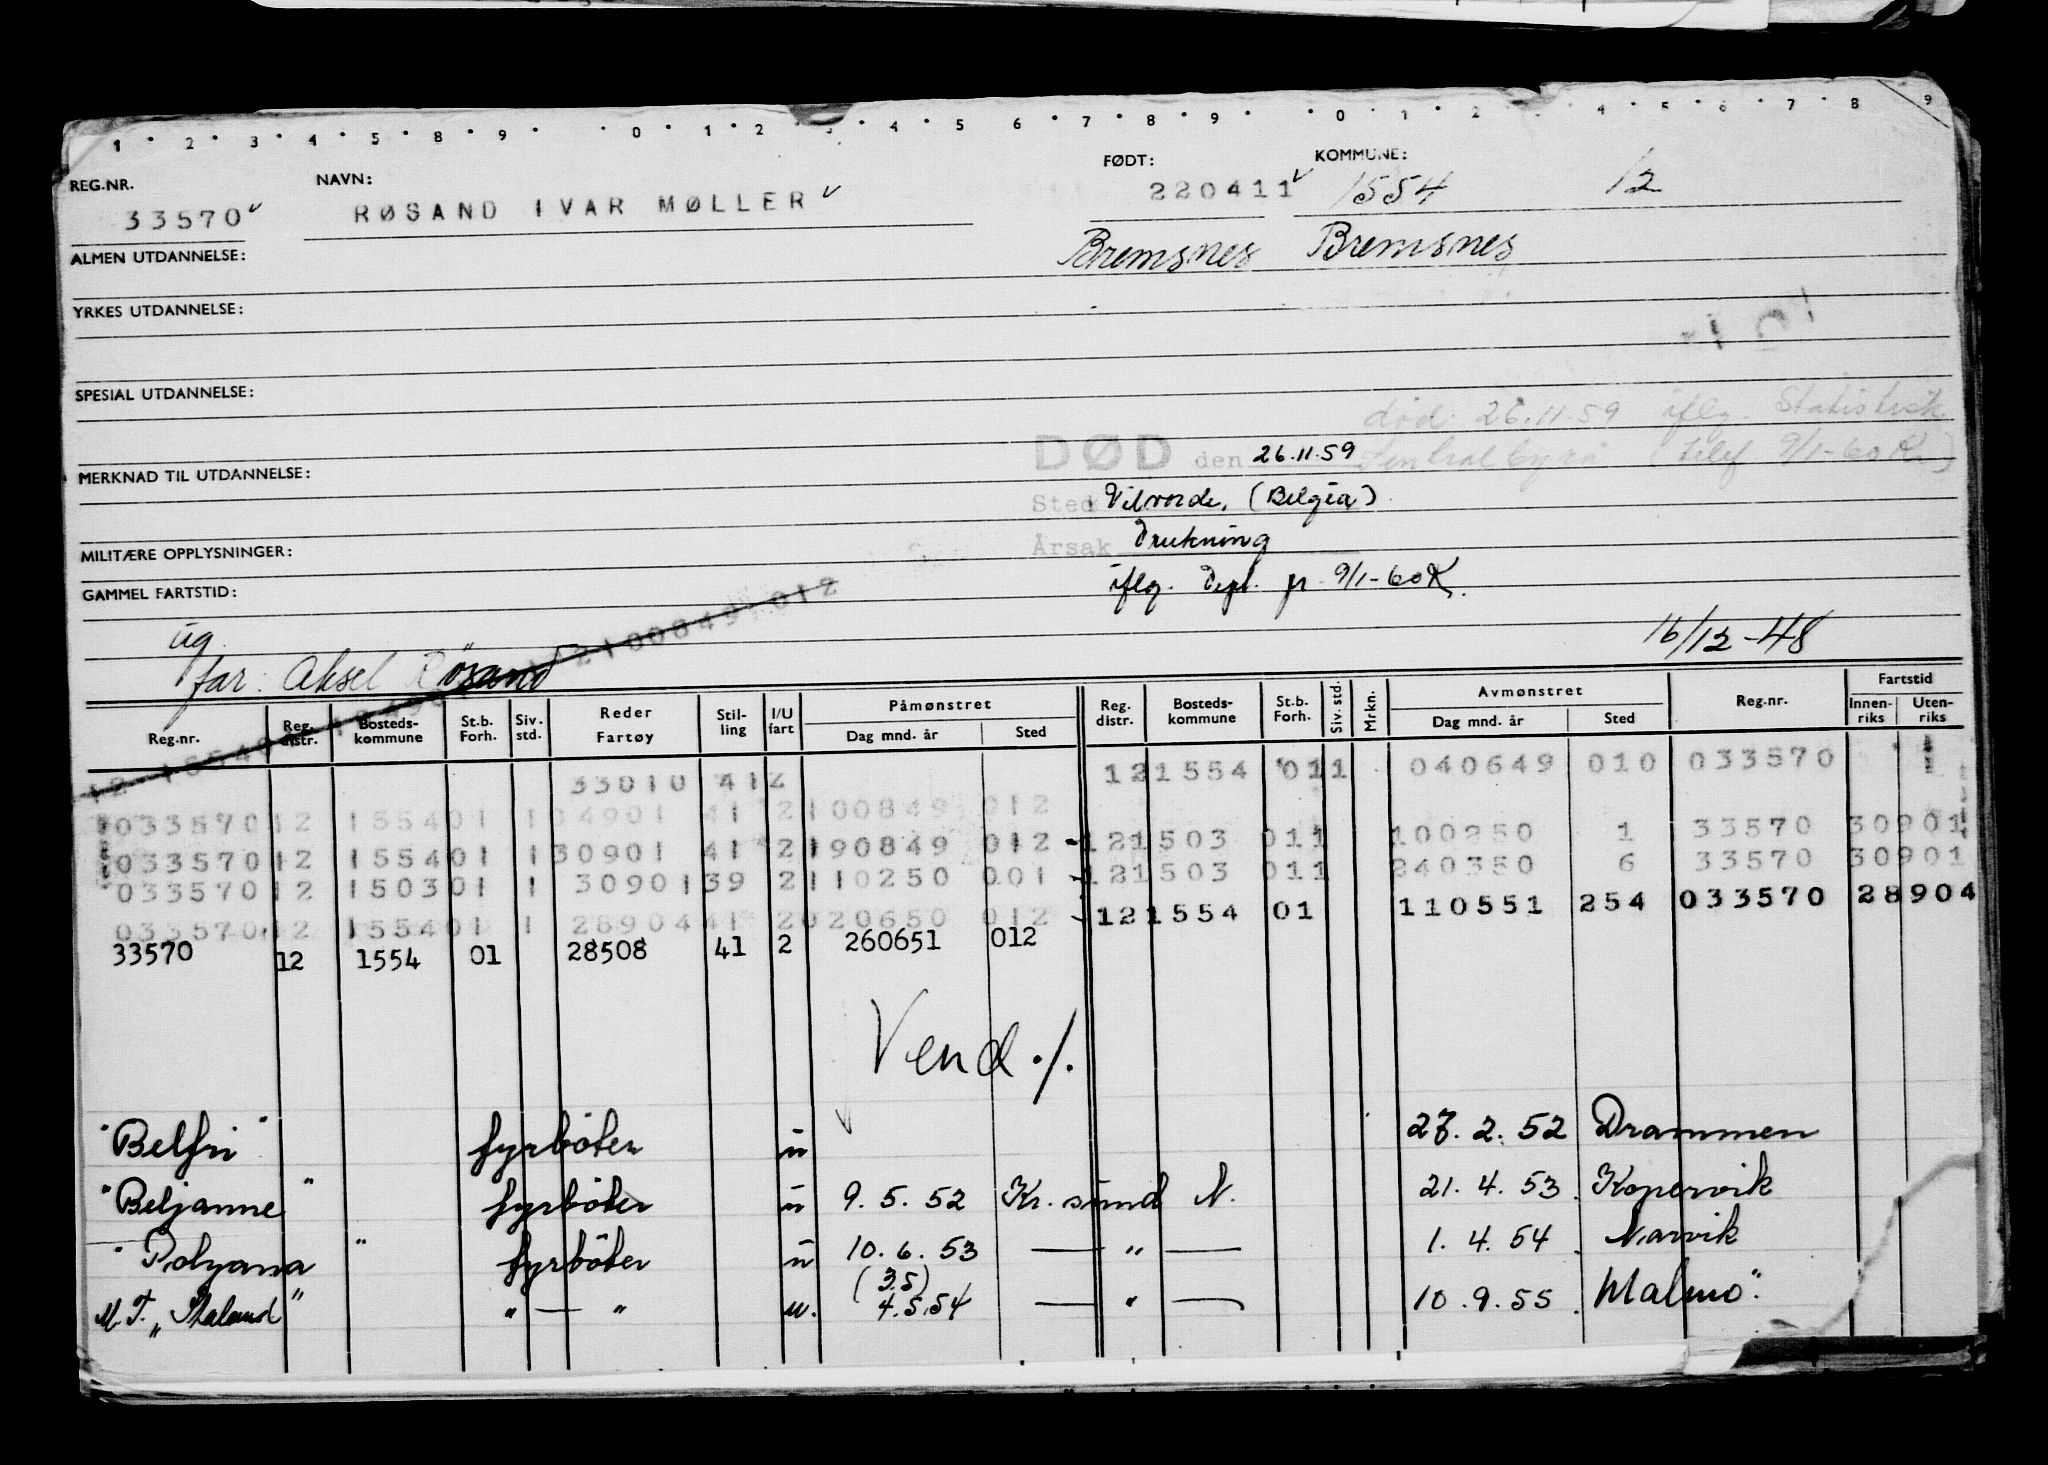 1 2 3 4 5 8 9 0 1 2 3 4 5 6 7 8 9 0 1 2 4 5 6 7 8 9
REG.NR. NAVN: FØDT: KOMMUNE:
33570 RØSAND IVAR MØLLER 220411 1554 12
ALMEN UTDANNELSE: Bremsnes Bremsnes
YRKES UTDANNELSE:
SPESIAL UTDANNELSE:
død 26.11.59 iflg. Statistisk
DØD den 26.11.59 Sentralbyrå (telef 9/1-60 K)
MERKNAD TIL UTDANNELSE:
Sted Vilvorde, (Belgia)
Årsak Drukning
MILITÆRE OPPLYSNINGER:
iflg. Dept. pr 9/1-60 K.
GAMMEL FARTSTID:
ug. 16/12-48
far: Aksel Røsand
Påmønstret Avmønstret Fartstid
Reg.nr. Reg. distr. Bosteds-kommune St.b. Forh. Siv. std. Reder Fartøy Stil-ling I/U fart Dag mnd. år Sted Reg. distr. Bosteds-kommune St.b. Forh. Siv. std. Mrkn. Dag mnd. år Sted Reg.nr. Innen-riks Uten-riks
33010 412 121554 011 040649 010 033570
033570 12 155401 1 04901 41 2 100849 012
033570 12 155401 1 30901 41 2 190849 012 121503 011 100250 1 33570 30901
033570 12 150301 1 30901 39 2 110250 001 121503 011 240350 6 33570 30901
033570 12 155401 1 28904 41 2 020650 012 121554 01 110551 254 033570 28904
33570 12 1554 01 28508 41 2 260651 012
Vend ./.
"Belfri" fyrbøter u 27.2.52 Drammen
"Beljanne" fyrbøter u 9.5.52 Kr.sund N. 21.4.53 Kopervik
"Polyana" fyrbøter u 10.6.53 — " — 1.4.54 Narvik
(3.5)
M.T. " " — " u. 4.5.54 — " — 10.9.55 Malmö.